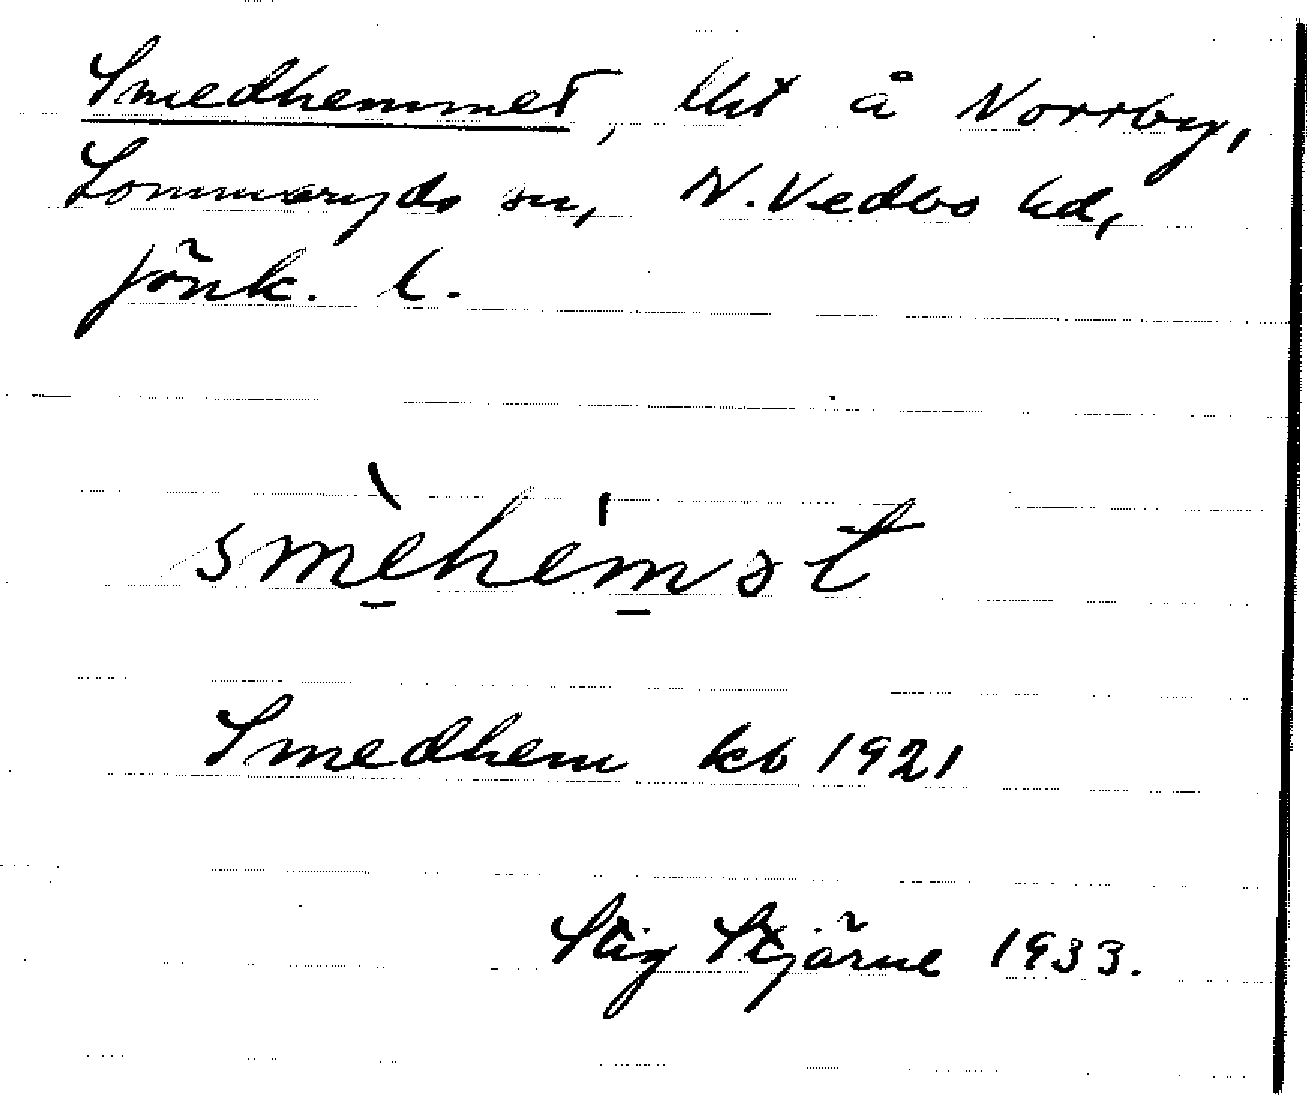 Smedhemmet, lht å Norrby,
Lommaryds sn, N. Vedbo hd,
Jönk. l.
smèhem̱ət
Smedhem kb 1921
Stig Stjärne 1933.